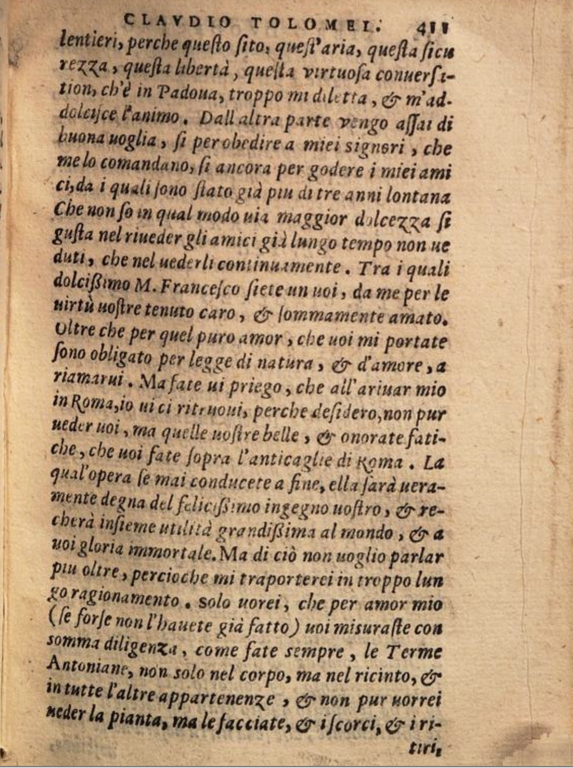 CLAVDIO TOLOMEI. 411
lentieri, perche questo sito, quest'aria, questa sicu
rezza, questa libertà, questa virtuosa conuersa-
tion, ch'è in Padoua, troppo mi diletta, & m'ad-
dolcisce l'animo. Dall'altra parte vengo assai di
buona uoglia, si per obedire a miei signori, che
me lo comandano, si ancora per godere i miei ami
ci, da i quali sono stato già piu di tre anni lontana
Che non so in qual modo uia maggior dolcezza si
gusta nel riueder gli amici già lungo tempo non ue
duti, che nel uederli continuamente. Tra i quali
dolcißimo M. Francesco siete un uoi, da me per le
uirtù uostre tenuto caro, & sommamente amato.
Oltre che per quel puro amor, che uoi mi portate
sono obligato per legge di natura, & d'amore, a
riamarui. Ma fate ui priego, che all'ariuar mio
in Roma, io ui ci ritruoui, perche desidero, non pur
ueder uoi, ma quelle uostre belle, & onorate fati-
che, che uoi fate sopra l'anticaglie di Roma. La
qual'opera se mai conducete a fine, ella sarà uera-
mente degna del felicißimo ingegno uostro, & re-
cherà insieme utilità grandißima al mondo, & a
uoi gloria immortale. Ma di ciò non uoglio parlar
piu oltre, percioche mi traporterei in troppo lun
go ragionamento. Solo uorei, che per amor mio
(se forse non l'hauete già fatto) uoi misuraste con
somma diligenza, come fate sempre, le Terme
Antoniane, non solo nel corpo, ma nel ricinto, &
in tutte l'altre appartenenze, & non pur uorrei
ueder la pianta, ma le facciate, & i scorci, & i ri-
tiri,